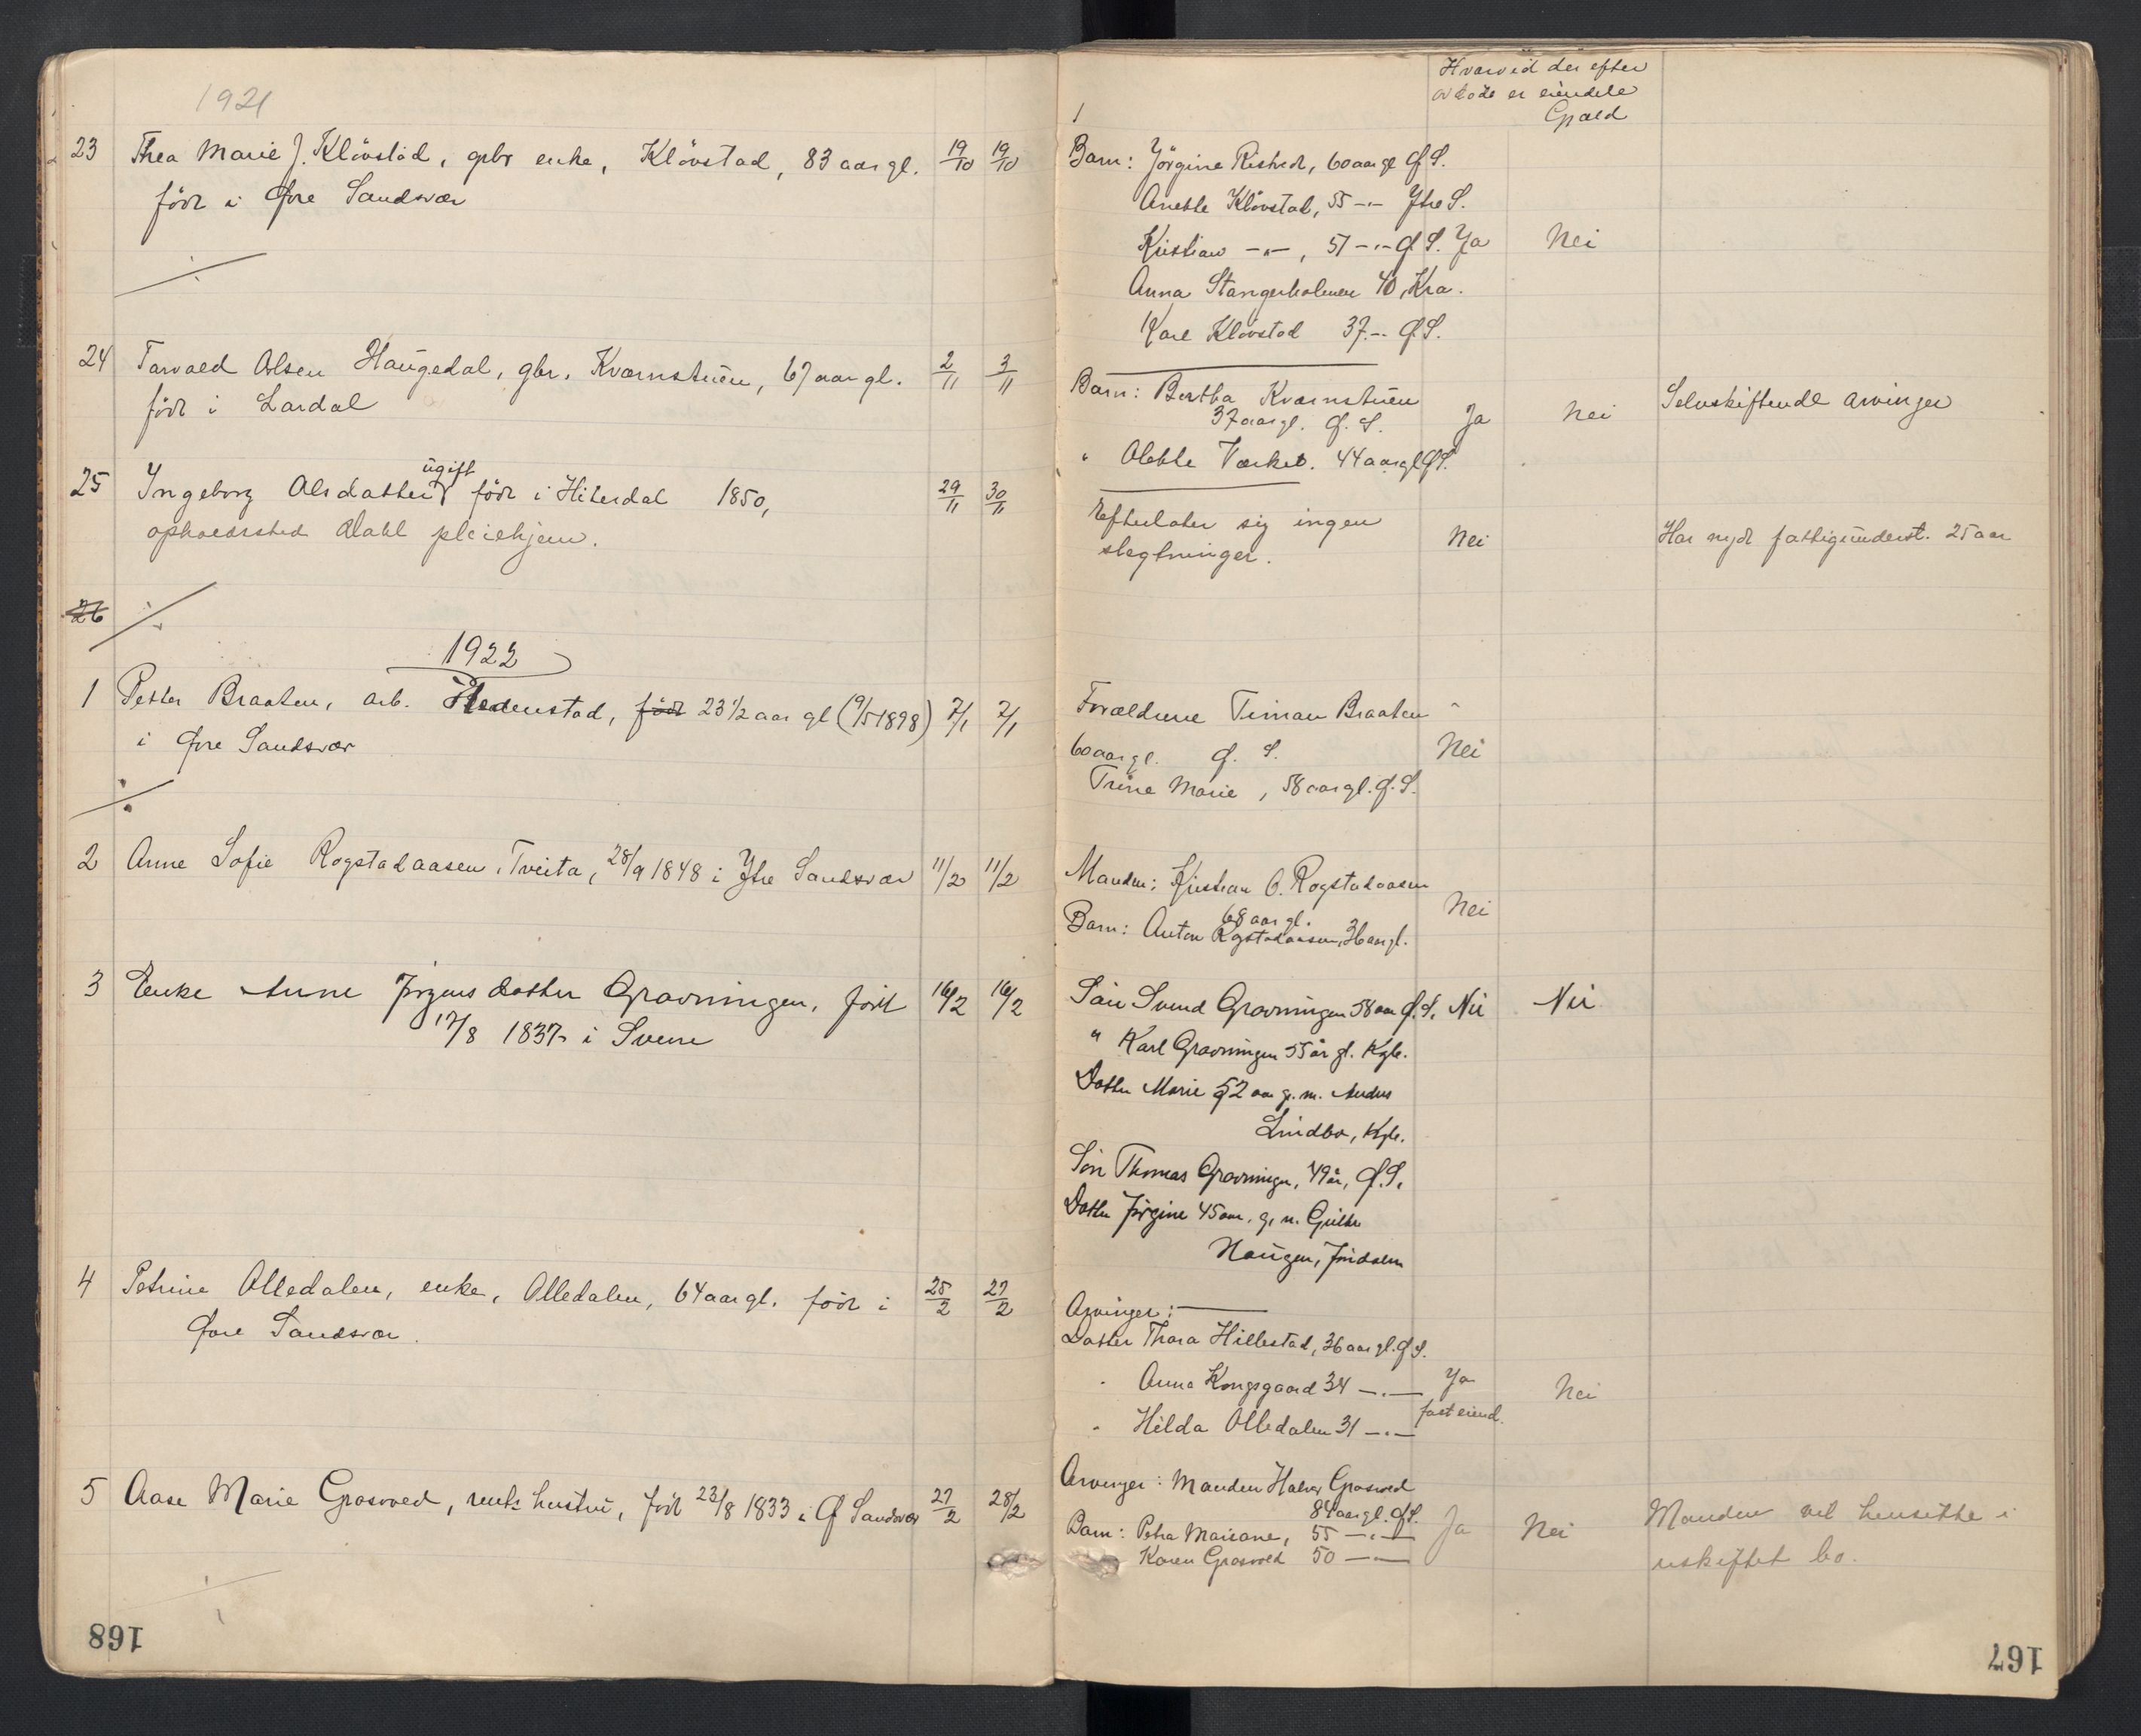 1921
23 Thea Marie J. Klövstad, gbr enke, Klövstad, 83 aar gl. 19/10 19/10
född i Øvre Sandsvær
24 Torvald Olsen Haugedal, gbr. Kværnstuen, 67 aar gl. 2/11 3/11
född i Lardal
25 Ingeborg Olsdatter ugift född i Hiterdal 1850, 29/11 30/11
opholdssted Dahl pleiehjem.
26
1922
1 Petter Braaten, arb. Hedenstad, född 23 1/2 aar gl (9/5 1898) 7/1 7/1
i Øvre Sandsvær
2 Anne Sofie Rogstadaasen, Tveita, 28/9 1848 i Ytre Sandsvær 11/2 11/2
3 Enke Anne Jörgensdatter Gravningen, född 16/2 16/2
17/8 1837 i Svene
4 Petrine Olledalen, enke, Olledalen, 64 aar gl. född i 25/2 27/2
Øvre Sandsvær.
5 Aase Marie Grosvold, hustru, född 23/8 1833 i Ø Sandsvær 27/2 28/2
168
Hvorvid der efter
avdöde er eiendele
Gjæld
Barn: Jörgine Ristvedt, 60 aar gl Ø S.
Anette Klövstad, 55 -"- Ytre S.
Kristian -"-, 51 -"- Ø S. Ja Nei
Anna Stangeholmen 40, Kra.
Karl Klövstad 37 -"- Ø S.
Barn: Bertha Kværnstuen
37 aar gl. Ø. S. Ja Nei Selvskiftende arvinger
" Olette Værket. 44 aar gl Ø S.
Efterlater sig ingen
slegtninger. Nei Har nydt fattigunderst. 25 aar
Forældrene Timan Braaten
60 aar gl. Ø. S. Nei
Trine Marie, 58 aar gl. Ø. S.
Manden: Kristian O. Rogstadaasen
68 aar gl. Nei
Barn: Anton Rogstadaasen, 36 aar gl.
Sön Svend Gravningen 58 aar Ø. S. Nei Nei
" Karl Gravningen 55 år gl. Kgb.
Datter Marie 52 aar g. m. Anders
Lindbo, Kgb.
Sön Thomas Gravningen, 49 år, Ø. S.
Datter Jörgine 45 aar, g. m.
Haugen, Jondalen
Arvinger:
Datter Thora Hillestad, 36 aar gl. Ø S.
" Anna Kongsgaard 34 -"- Ja Nei
fast eiend.
" Hilda Olledalen 31 -"-
Arvinger: Manden Halvor Grosvold
84 aar gl. Ø S.
Barn: Petra Mariane, 55 -"- Ja Nei Manden vil hensitte i
Karen Grosvold 50 -"- uskiftet bo.
167